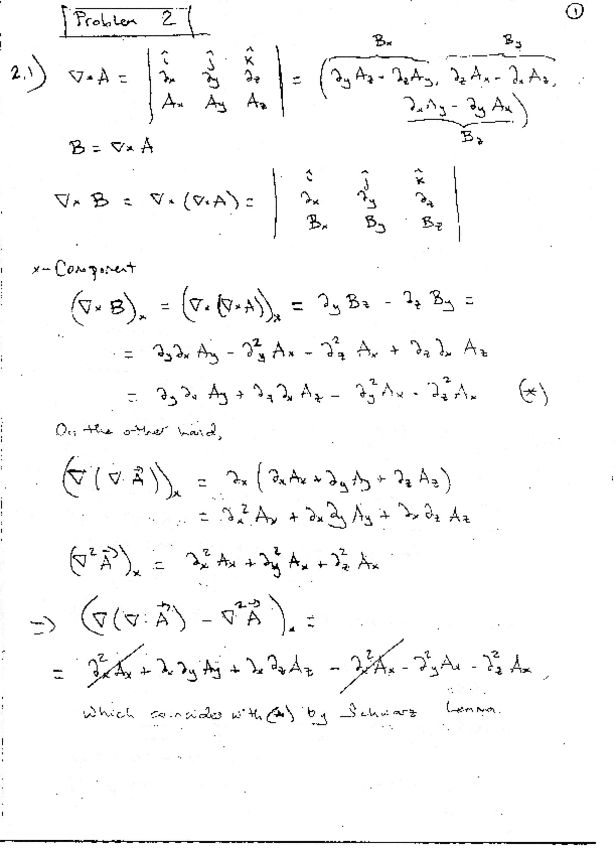 ①
Problem 2
2.1) ∇×A = | î ĵ k̂ ; ∂x ∂y ∂z ; Ax Ay Az | = (∂yAz - ∂zAy, ∂zAx - ∂xAz, ∂xAy - ∂yAx)
Bx By Bz
B = ∇×A
∇×B = ∇×(∇×A) = | î ĵ k̂ ; ∂x ∂y ∂z ; Bx By Bz |
x-Component
(∇×B)x = (∇×(∇×A))x = ∂yBz - ∂zBy =
= ∂y∂xAy - ∂y²Ax - ∂z²Ax + ∂z∂xAz
= ∂y∂xAy + ∂z∂xAz - ∂y²Ax - ∂z²Ax (*)
On the other hand,
(∇(∇·A⃗))x = ∂x(∂xAx + ∂yAy + ∂zAz)
= ∂x²Ax + ∂x∂yAy + ∂x∂zAz
(∇²A⃗)x = ∂x²Ax + ∂y²Ax + ∂z²Ax
=> (∇(∇·A⃗) - ∇²A⃗)x =
= ∂x²Ax + ∂x∂yAy + ∂x∂zAz - ∂x²Ax - ∂y²Ax - ∂z²Ax,
which coincides with (*) by Schwarz Lemma.